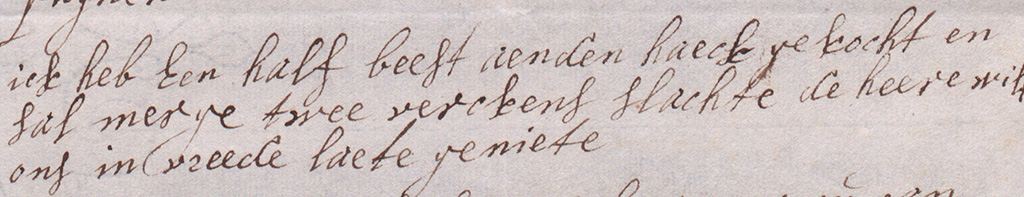 ick heb een half beest aenden haeck gekocht en
sal merge twee verckens slachte de heere wil
ons in vreede laete geniete